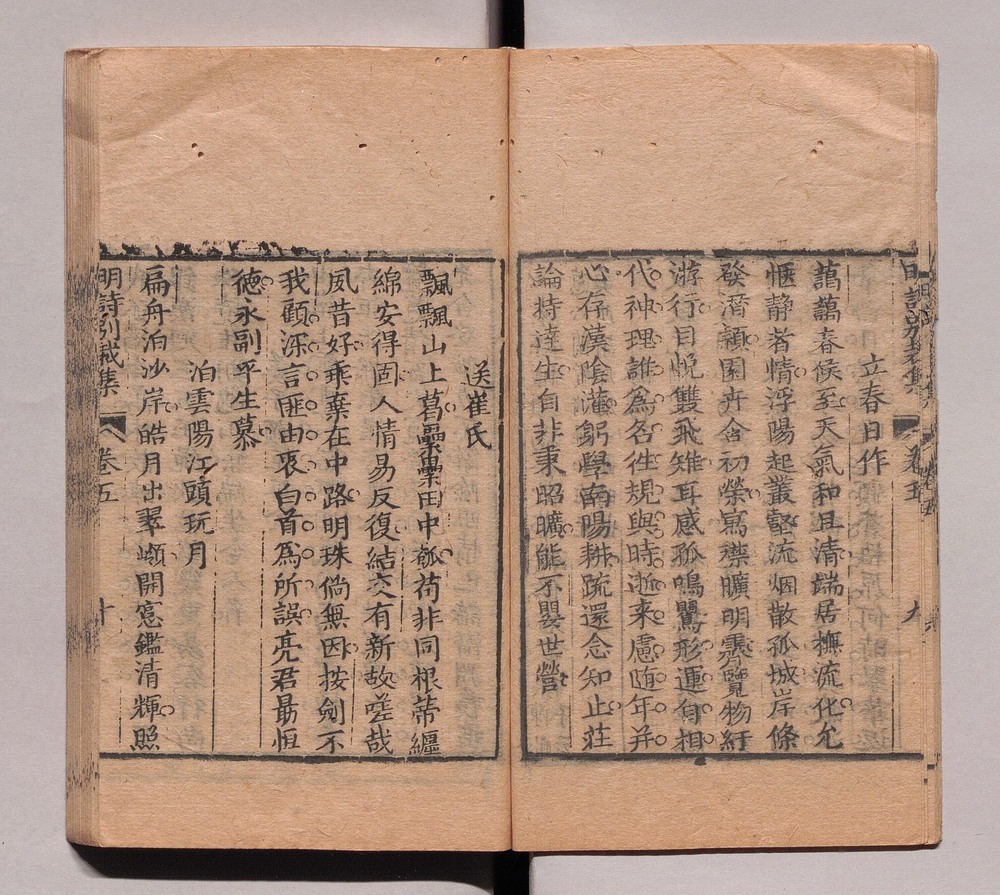 明詩別裁集 卷五 九
立春日作
藹藹春候至天氣和且清端居撫流化允
愜静者情浮陽起叢壑流烟散孤城岸條
發潛穎園卉含初榮寫襟曠明霽覽物紆
游行目悅雙飛雉耳感孤鳴鸎形運旬相
代神理誰爲名往規與時逝来慮随年并
心存漢陰灌躬學南陽耕疏還念知止莊
論持達生自非秉昭曠能不嬰世營
送崔氏
飄飄山上葛纍纍田中瓠苟非同根蒂纏
綿安得固人情易反復結交有新故嗟哉
夙昔好乘棄在中路明珠倘無因按劍不
我顧深言匪由衷白首爲所誤亮君最恒
徳永副平生慕
泊雲陽江頭玩月
扁舟泊沙岸皓月出翠嶺開窓鑑清輝照
明詩別裁集 卷五 十